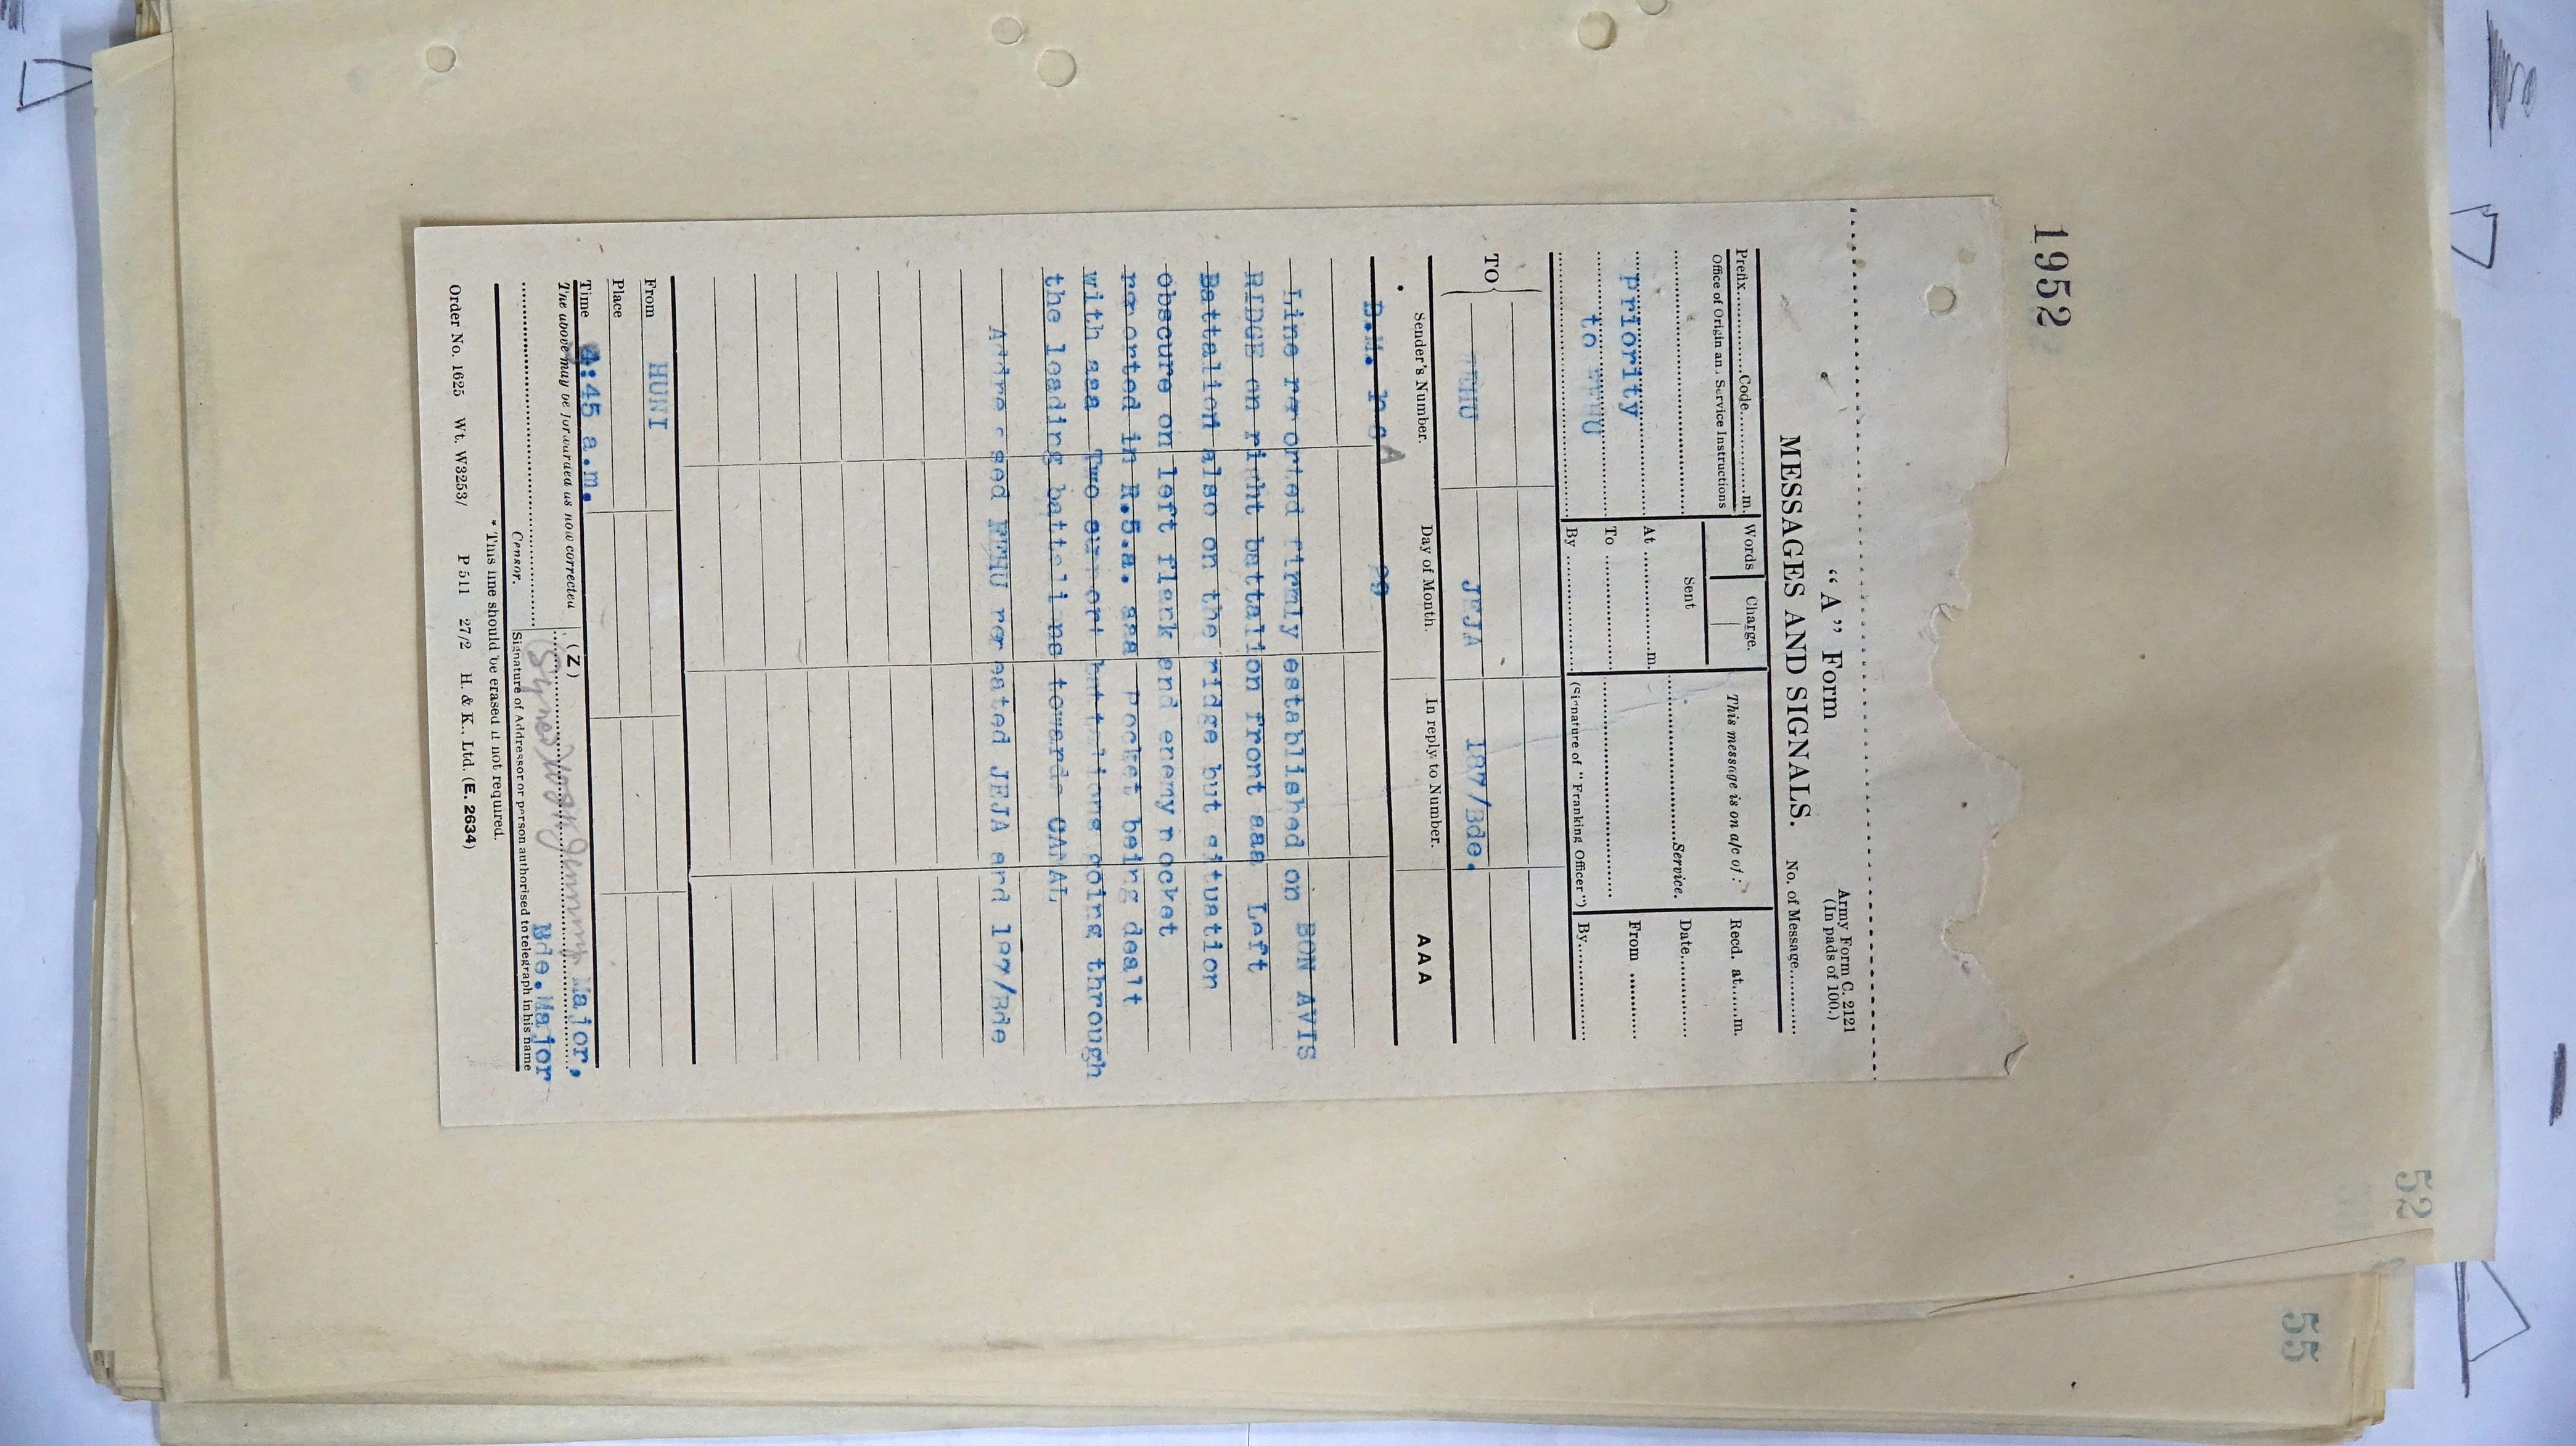 1952
"A" Form
Army Form C. 2121
(In pads of 100.)
MESSAGES AND SIGNALS.
No. of Message............
Prefix............Code............m.
Words
Charge.
This message is on a/c of:
Recd. at......m.
Office of Origin and Service Instructions
Sent
Date............
priority
At ............m.
............Service.
From ............
to
To ............
By ............
(Signature of "Franking Officer")
By............
TO
JEJA
187/Bde.
Sender's Number.
Day of Month.
In reply to Number.
AAA
B.M.
A
Line reported firmly established on BON AVIS
RIDGE on right battalion front aaa Left
Battalion also on the ridge but situation
obscure on left flank and enemy pocket
reported in R.5.a. aaa Pocket being dealt
with aaa Two support battalions going through
the leading battalions towards CANAL
Addressed repeated JEJA and 187/Bde
From HUWI
Place
Time 4:45 a.m.
The above may be forwarded as now corrected
(Z)
Major,
Bde.Major
Censor.
Signature of Addressor or person authorised to telegraph in his name
* This line should be erased if not required.
Order No. 1625 Wt. W3253/ P 511 27/2 H. & K., Ltd. (E. 2634)
52
55